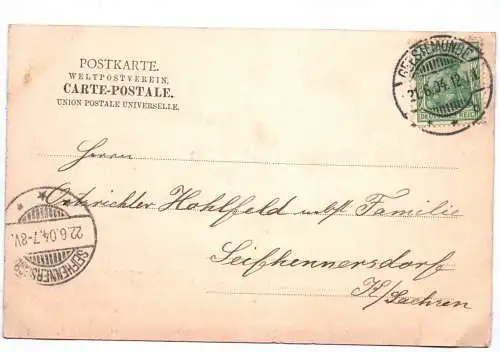 POSTKARTE.
WELTPOSTVEREIN.
CARTE-POSTALE.
UNION POSTALE UNIVERSELLE.
GEESTEMÜNDE
21.6.04.12
DEUTSCHES REICH
Herrn
Ortsrichter Hohlfeld nebst Familie
Seifhennersdorf
i/Sachsen
SEIFHENNERSDORF
22.6.04.7-8V.